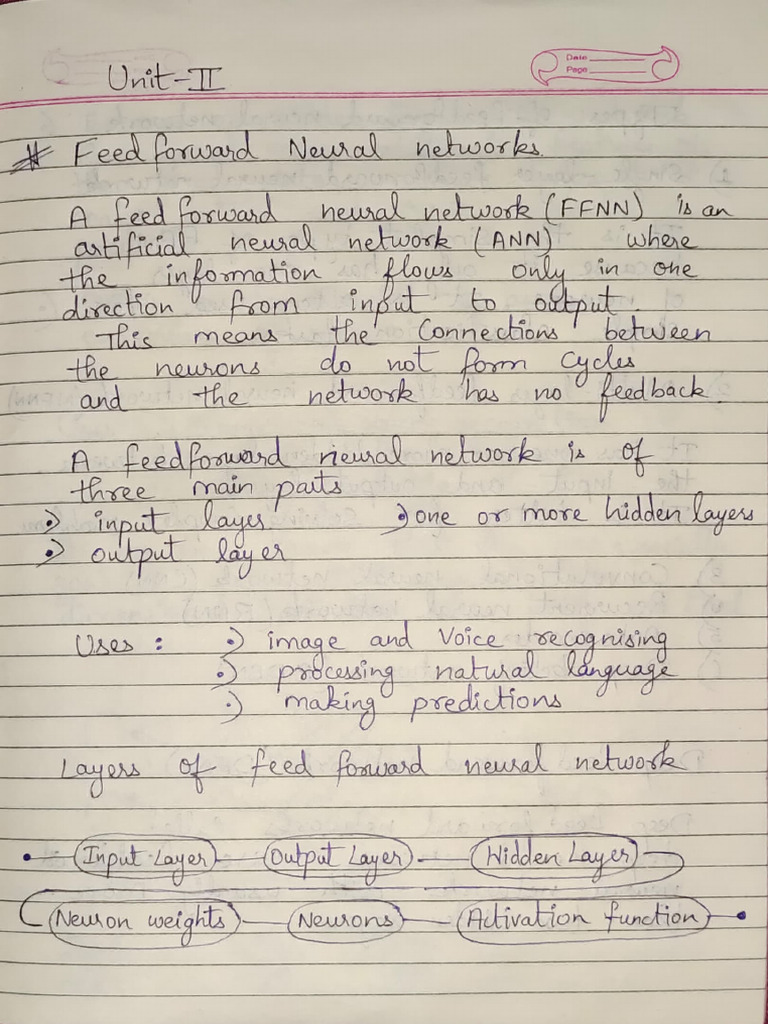 Unit-II
Date
Page
# Feed forward Neural networks.
A feed forward neural network (FFNN) is an
artificial neural network (ANN) where
the information flows only in one
direction from input to output
This means the Connections between
the neurons do not form cycles
and the network has no feedback.
A feedforward neural network is of
three main parts
•) input layer •) one or more hidden layers
•) output layer
Uses : •) image and Voice recognising
•) processing natural language
•) making predictions
Layers of feed forward neural network
Input Layer Output Layer Hidden Layer
Neuron weights Neurons Activation function